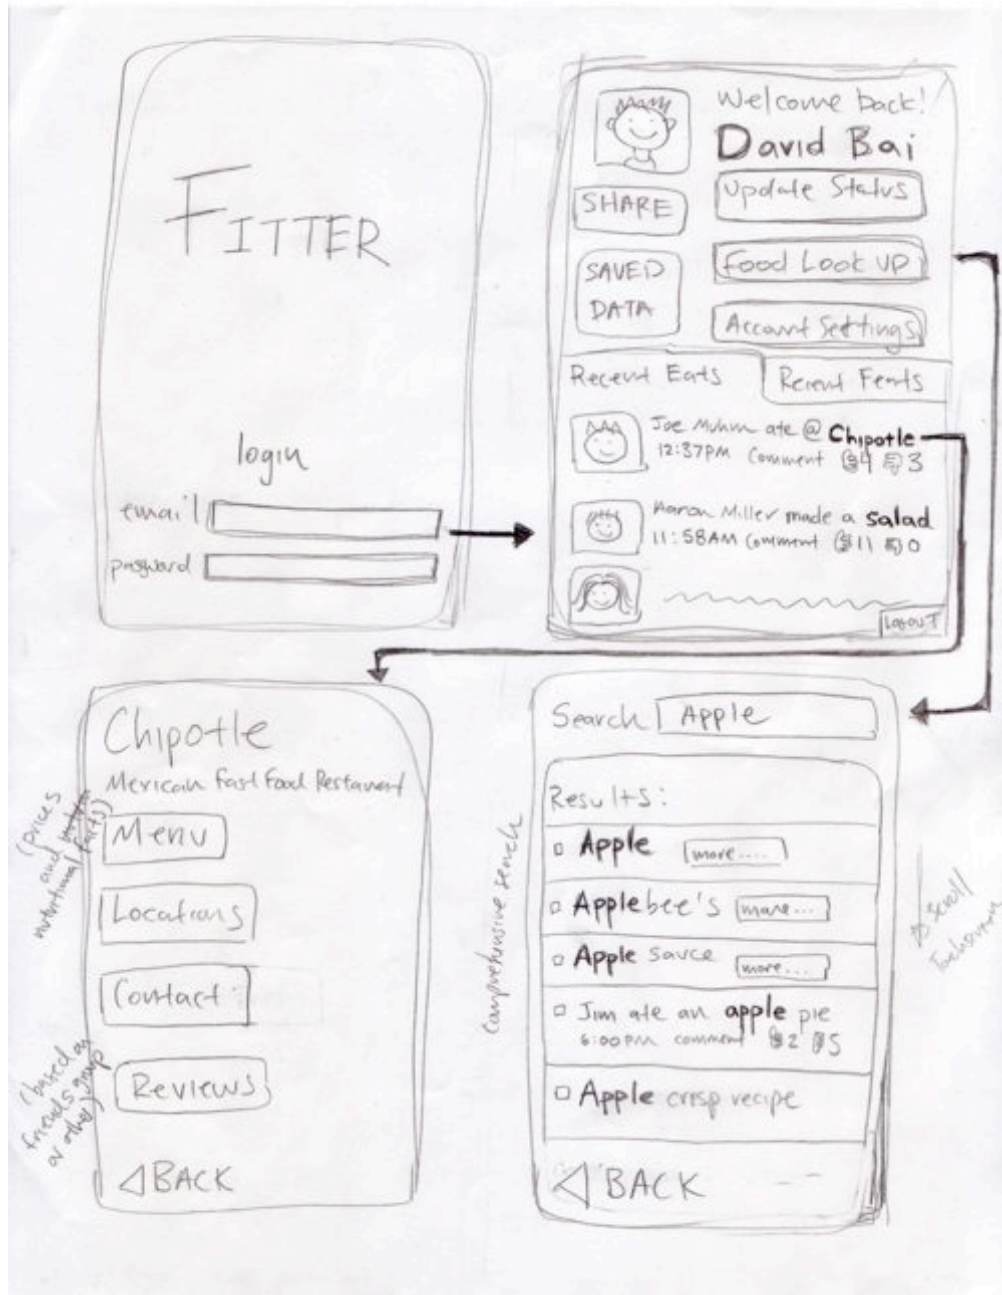 FITTER
login
email
password
Welcome back!
David Bai
Update Status
SHARE
Food Look up
SAVED
DATA
Account Settings
Recent Eats
Recent Feats
Joe ate @ Chipotle
12:37PM Comment 4 3
Aaron Miller made a salad
11:58AM Comment 11 0
LOGOUT
Chipotle
Mexican Fast Food Restaurant
(prices
and
nutritional facts)
Menu
Locations
Contact
(based on
friends
or other group
Reviews
BACK
Search Apple
comprehensive search
Results:
Apple more....
Applebee's more...
Apple sauce more...
Jim ate an apple pie
6:00PM comment 2 5
Apple crisp recipe
Scroll
BACK